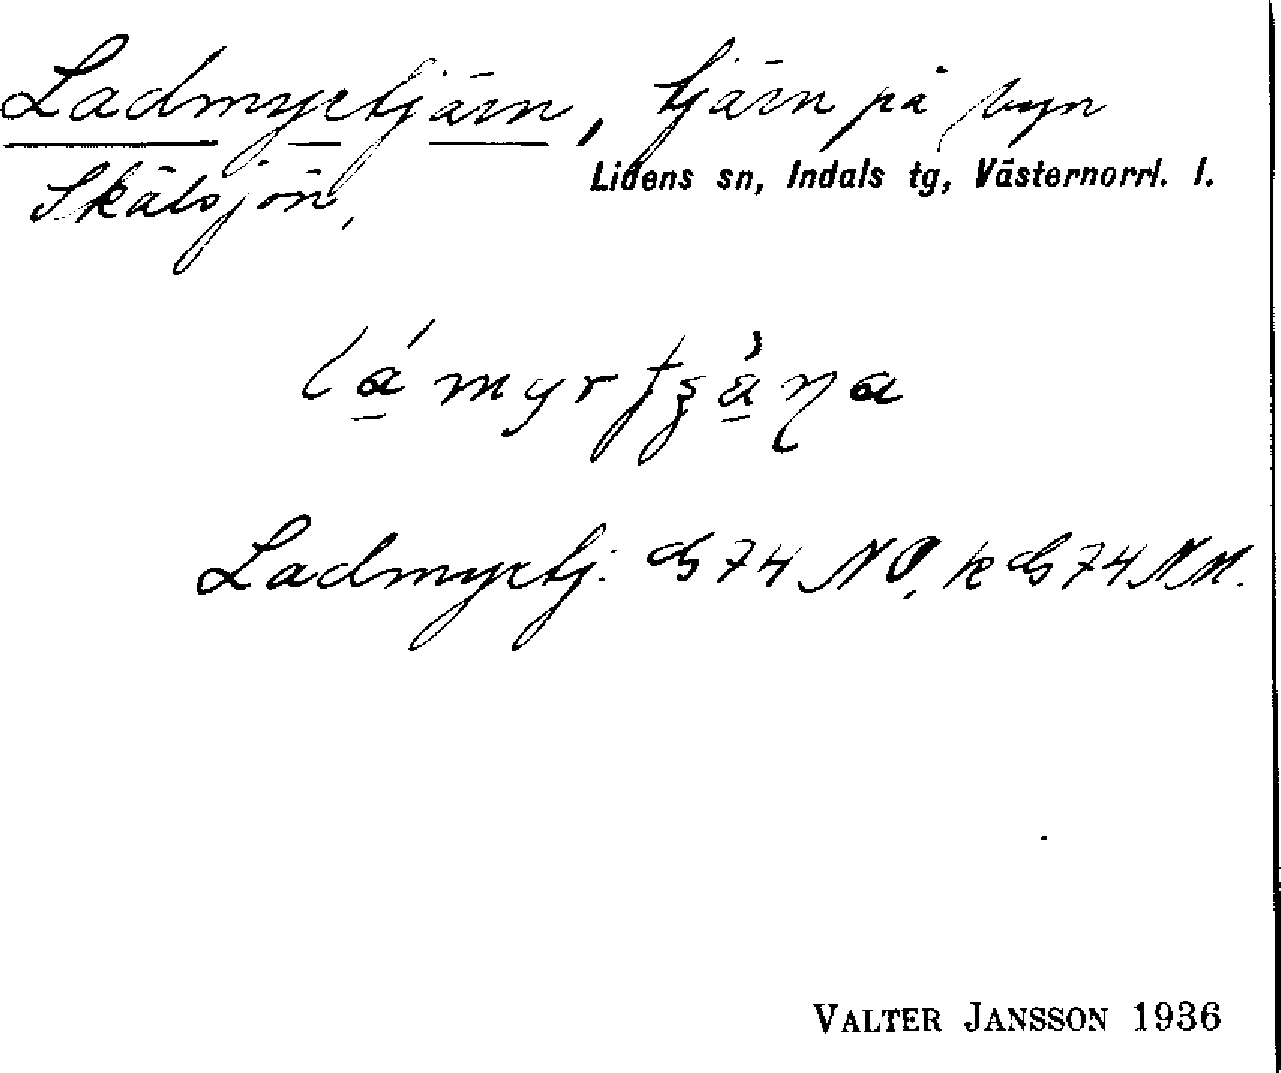 Ladmyrtjärn, tjärn på byn
Skälsjön,
Lidens sn, Indals tg, Västernorrl. l.
Ladmyrtj. ds 74 NO, k ds 74 NM.
VALTER JANSSON 1936